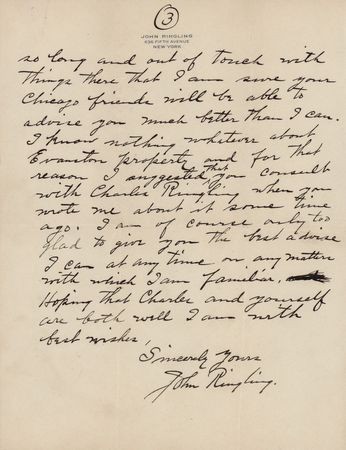 3
JOHN RINGLING
636 FIFTH AVENUE
NEW YORK
so long and out of touch with
things there that I am sure your
Chicago friends will be able to
advise you much better than I can.
I know nothing whatever about
Evanston property and for that
reason I suggested that you consult
with Charles Ringling when you
wrote me about it some time
ago. I am of course only too
glad to give you the best advise
I can at any time on any matters
with which I am familiar.
Hoping that Charles and yourself
are both well I am with
best wishes,
Sincerely Yours
John Ringling.